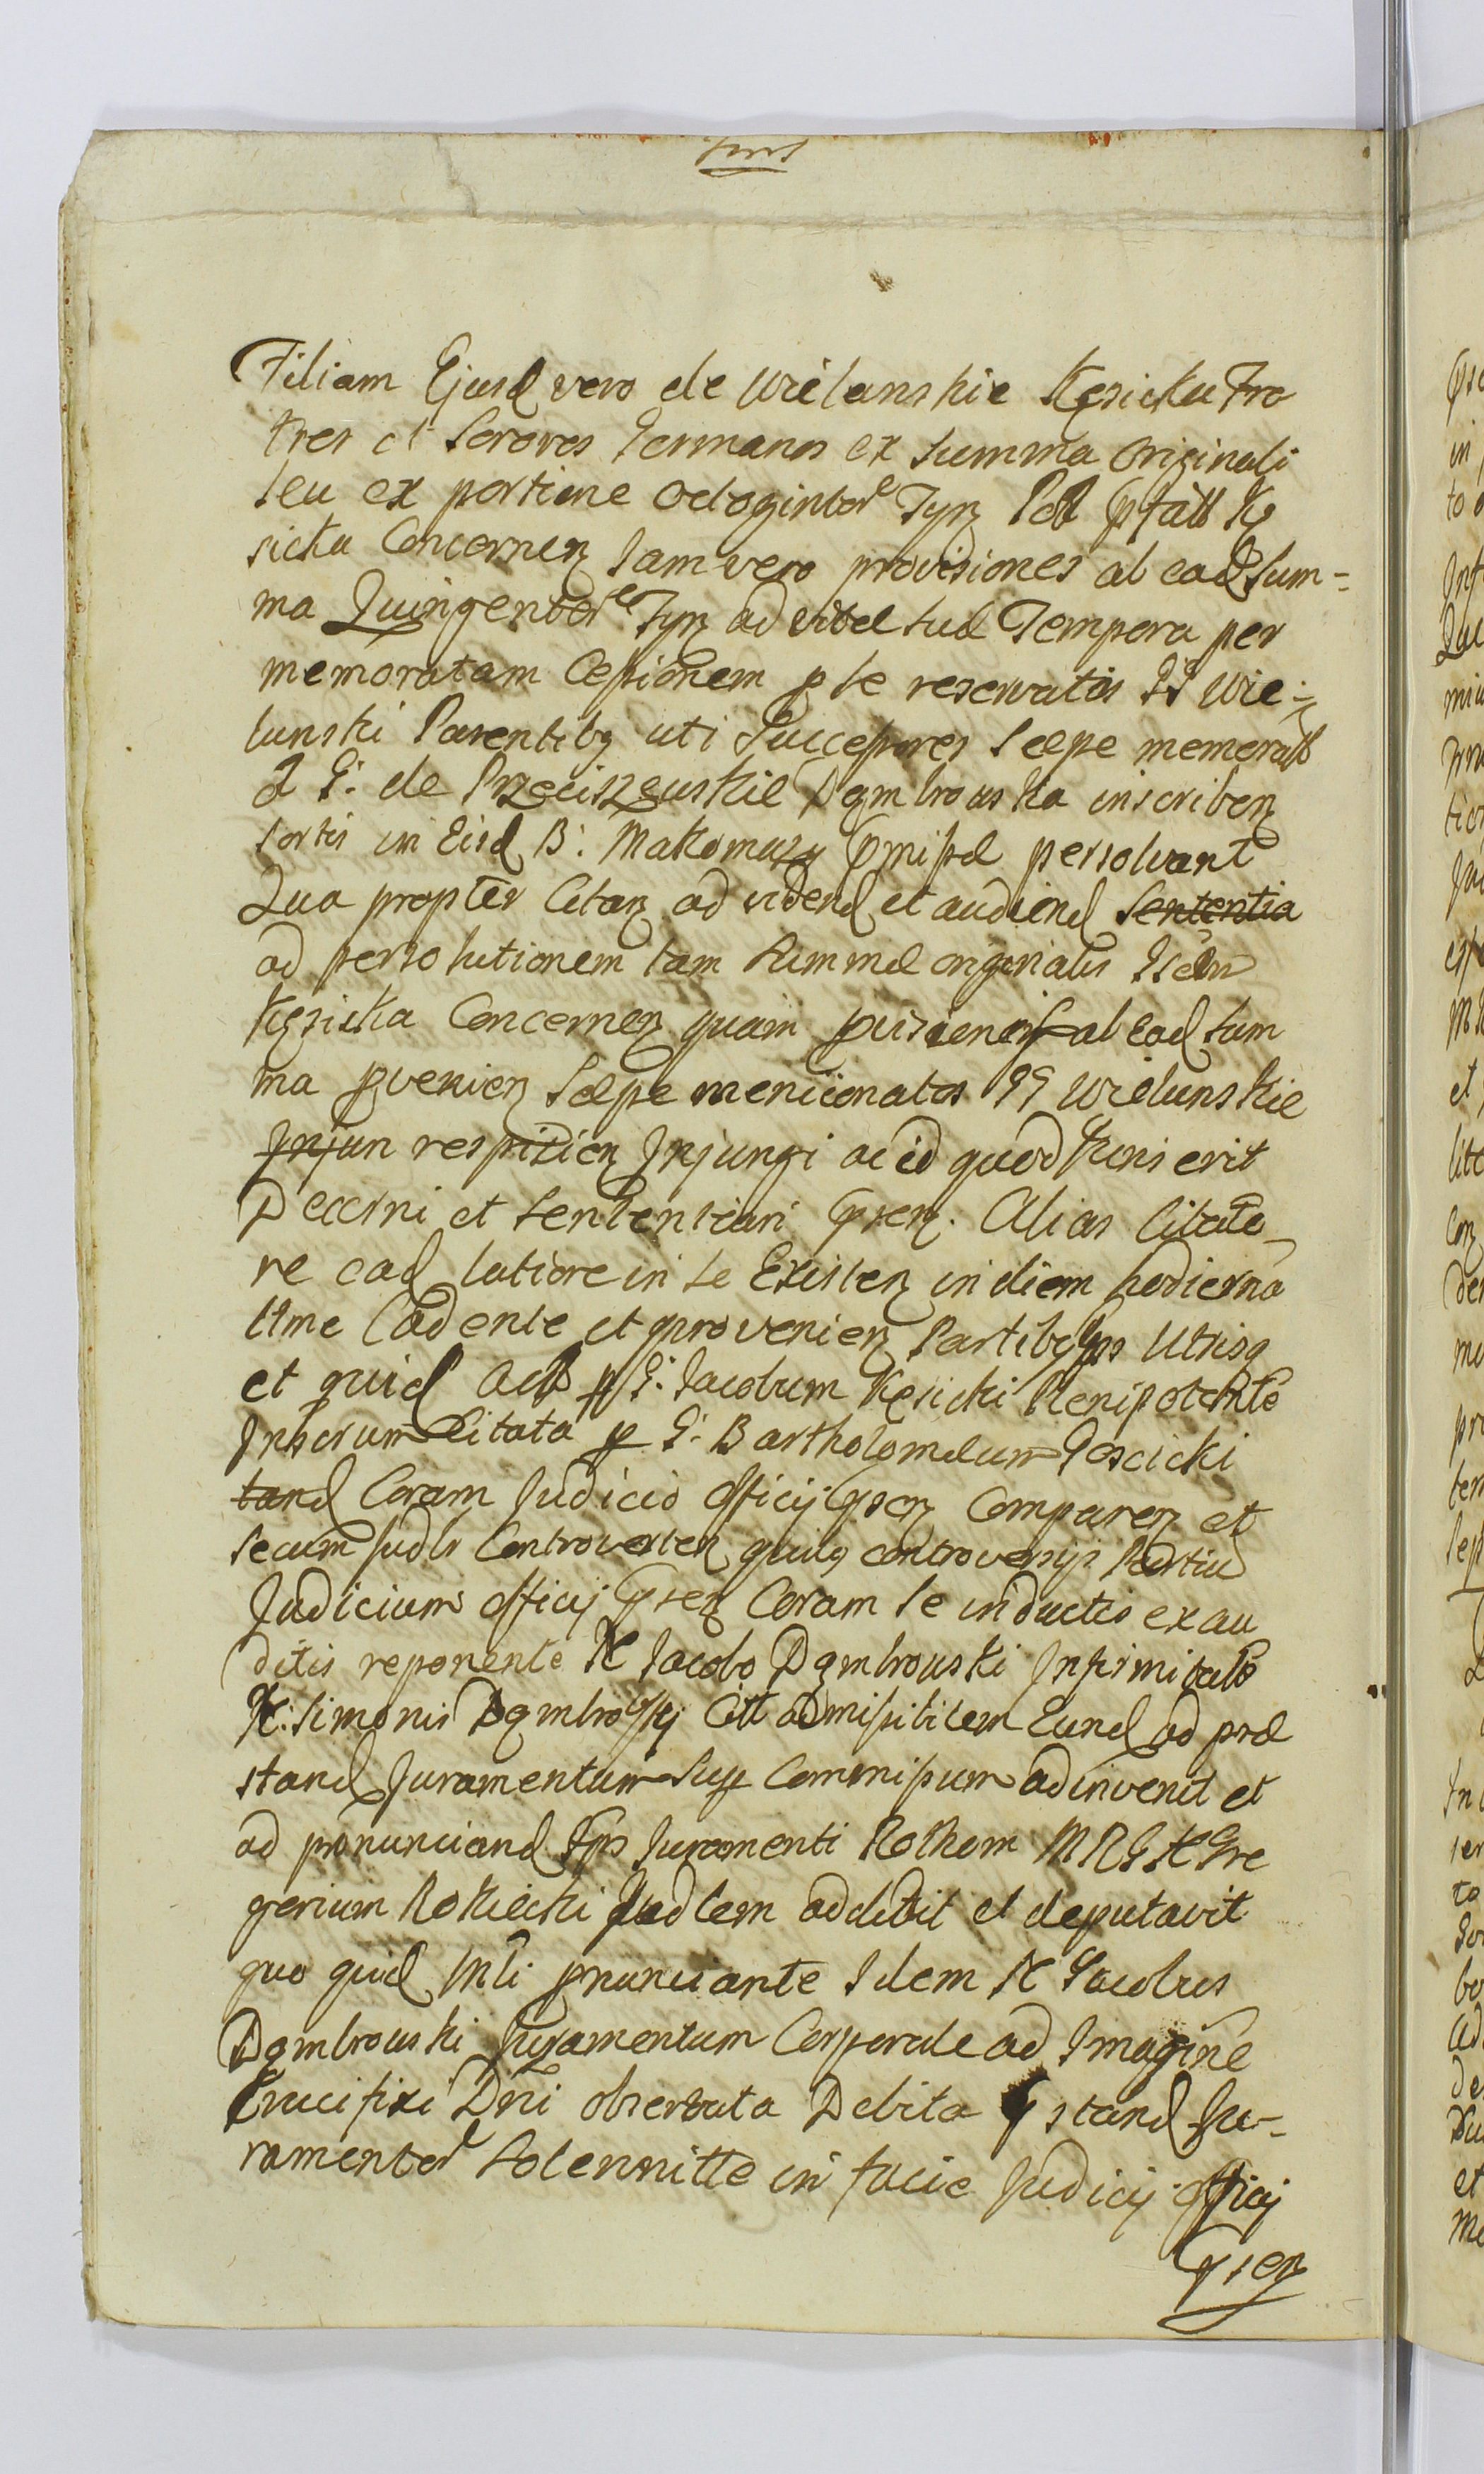 Filiam Ejusd vero de Wielunskie Kęsicka Fra
tres et Sorores Germanos ex Summa Originali
seu ex portione octogintor Tynf Pol pfatt Kę
sicka Concernen Jam vero provisiones ab ead Sum-
ma Quingentor Tynf ad vitae suae Tempora per
memoratam Cessionem p se reservatas GG Wie-
lunski Parentibq uti Successores Saepe memoratt
J G: de Przeciszewskie Dąmbrowska inscriben
sortis in Eisd B: Makomazy Omissae persolvant
Qua propter Citan ad vidend et audiend Sententia
ad persolutionem tam Summae originalis
Kęsicka Concernen quam ab ead sum
ma pvenien Saepe mencionatos GG Wielunskie
Injun respicien Injungi ac id quod Juris erit
Decerni et Sententiari psen. Alias Citatio
ne ead latiore in se Existen in diem hodierna
Ttme Cadente et provenien Partibq Ips Utrisq
et quid Act p G: Jacobum Kęsicki Plenipotente
Inscrum Citata p G: Bartholomaeum Goscicki
tand Coram Judicio Officij psen Comparen et
Secum Judlr Controverten quibq controversijs Partiu
Judicium officij psen Coram Se inductis exau
ditis reponente N Jacobo Dąmbrowski Infirmitate
N: Simonis Dąmbrowski Citt admisibilem Eund ad prae
stand Juramentum Sup Commissum adinvenit et
ad pronunciand Ips Juramenti Rotham MRG N Gre
gorium Rokicki Judlem addidit et deputavit
quo quid Mli pnunciante Idem N Jacobus
Dąmbrowski Juramentum Corporale ad Imagine
Crucifixi Dni observata Debita pstand Ju-
ramentor Solennitte in facie Judicij officij
psen